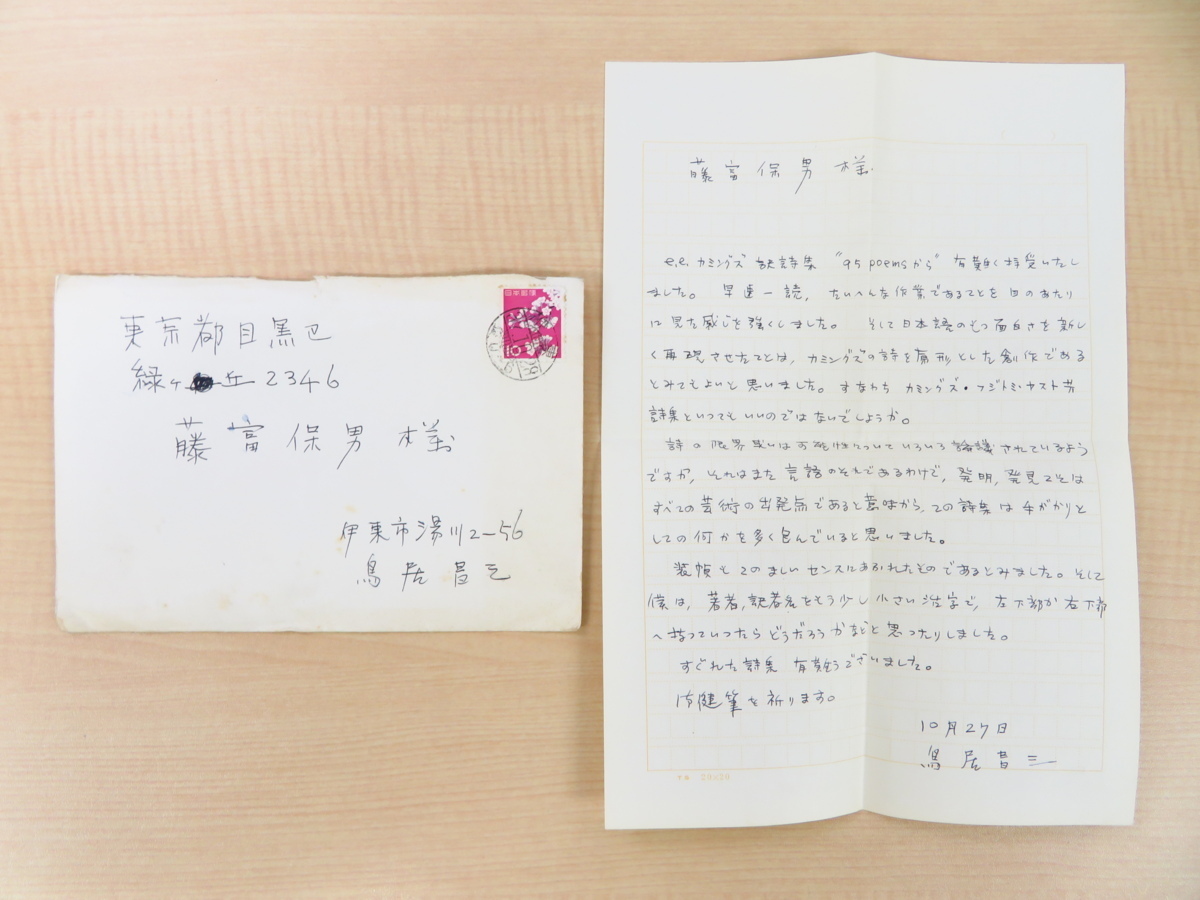 日本郵便
10
東京都目黒区
緑ヶ丘2346
藤富保男様
伊東市湯川2-56
鳥居昌三
藤富保男様
e.e.カミングズ 訳詩集 "95 poemsから" 有難く拝受いたし
ました。 早速一読，たいへんな作業であることを目のあたり
に見た感じを強くしました。 そして日本語のもつ面白さを新し
く再現させたことは，カミングズの詩を扇形とした創作である
とみてもよいと思いました。すなわち カミングズ・フジトミ・ヤスオ共
詩集といってもいいのではないでしょうか。
詩の限界或いは可能性についていろいろ論議されているよう
ですが，それはまた言語のそれであるわけで，発明，発見こそは
すべての芸術の出発点であると意味から，この詩集は手がかりと
しての何かを多く包んでいると思いました。
装幀もこのましいセンスにあふれたものであるとみました。そして
僕は，著者，訳者名をもう少し小さい活字で，左下部か右下部
へ持っていったらどうだろうかなどと思ったりしました。
すぐれた詩集 有難うございました。
御健筆を祈ります。
10月27日
鳥居昌三